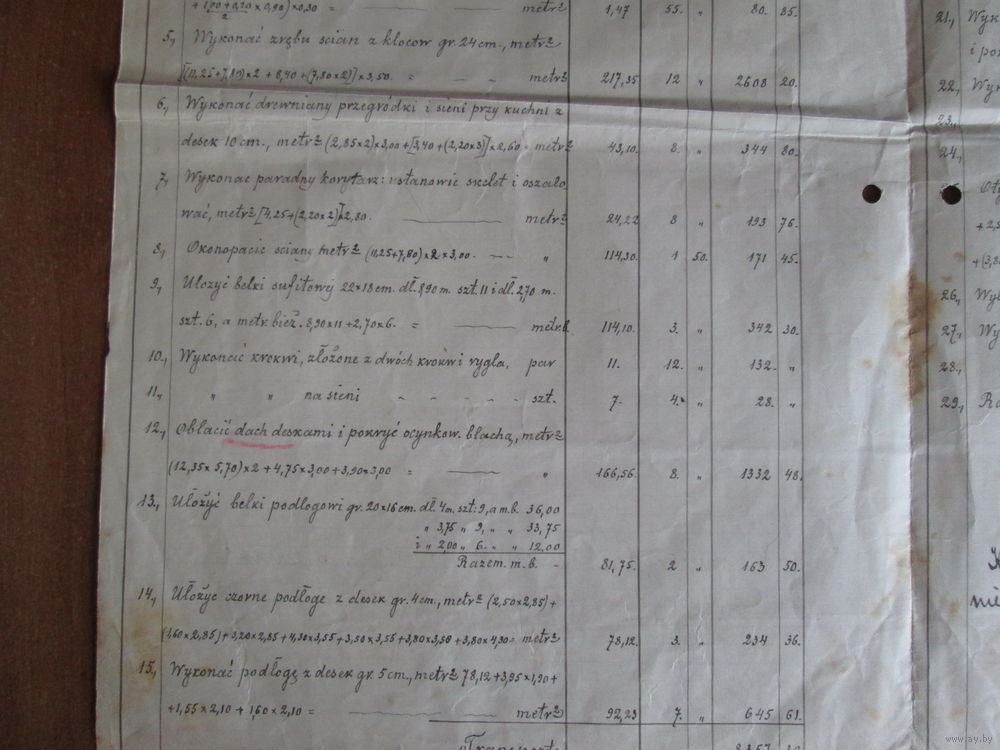 + 1,90 + 0,20 / 2 x 0,90) x 0,30 = metr² 1,47 55. „ 80. 85.
5., Wykonać zrębu ścian z klocow gr. 24 cm., metr²
[(11,25+7,80)x2 + 8,40 + (7,80x2)] x 3,50. = — — metr² 217,35 12 „ 2608 20.
6., Wykonać drewniany przegródki i sieni przy kuchni z
desek 10 cm., metr² (2,85x2)x3,00 + [3,40 + (2,20x3)] x 2,60 = metr² 43,10 8. „ 344 80.
7., Wykonac paradny korytarz: ustanowić skelet i oszalo
wać, metr² [4,25+(2,20x2)]x2,80. metr² 24,22 8 „ 193 76.
8., Okonopacić sciany metr² (11,25+7,80)x2x3,00. — — „ 114,30. 1 50. 171 45.
9., Ulozyć belki sufitowy 22x18 cm. dł. 8,90 m. szt. 11 i dł. 2,70 m.
szt. 6, a metr bież. 8,90x11 + 2,70x6. = metrb 114,10. 3. „ 342 30.
10., Wykonać krokwi, złożone z dwóch krokwi rygla, par 11. 12. „ 132. „
11., „ „ na sieni - - - - szt. 7. 4. „ 28. „
12., Obłacić dach deskami i pokryć ocynkow. blachą, metr²
(12,35x5,70)x2 + 4,75x3,00 + 3,90x3,00 = „ 166,56. 8. „ 1332 48.
13., Ułożyć belki podlogowi gr. 20x16 cm. dł. 4 m. szt: 9, a m.b. 36,00
„ 3,75 „ 9, „ „ 33,75
i „ 2,00 „ 6. „ „ 12,00
Razem. m. b. - 81,75. 2 „ 163 50.
14., Ułożyc czorne podłoge z desek gr. 4 cm., metr² (2,50x2,85) +
(1,60x2,85) + 3,20x2,85 + 4,30x3,55 + 3,50x3,55 + 3,80x3,50 + 3,80x4,30 = metr² 78,12. 3. „ 234 36.
15., Wykonać podłogę z desek gr. 5 cm., metr² 78,12 + 3,95x1,90 +
+ 1,55x2,10 + 1,60x2,10 = metr² 92,23 7. „ 645 61.
21., Wyk
i po
22., Wyk
23.,
24.,
+ 2,5
+ (3,8
26., Wyk
27., Wy
28.,
29., Ra
nie
www.ay.by